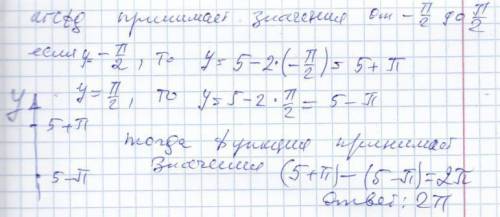 arctg принимает значения от -π/2 до π/2
если y=-π/2, то y=5-2·(-π/2)=5+π
y=π/2, то y=5-2·π/2=5-π
y
5+π
тогда функция принимает
значения (5+π)-(5-π)=2π
5-π
Ответ: 2π